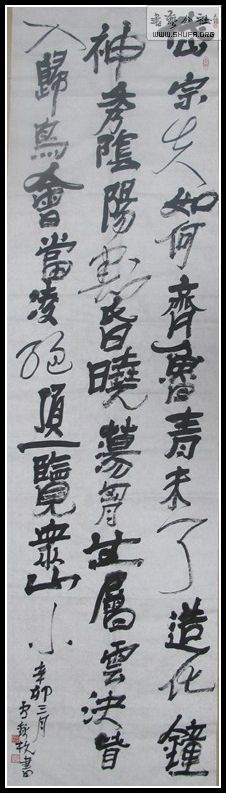 書法公社
WWW.SHUFA.ORG
岱宗夫如何齊魯青未了造化鐘
神秀陰陽割昏曉蕩胷生層雲決眥
入歸鳥會當凌絕頂一覽衆山小
辛卯三月
書